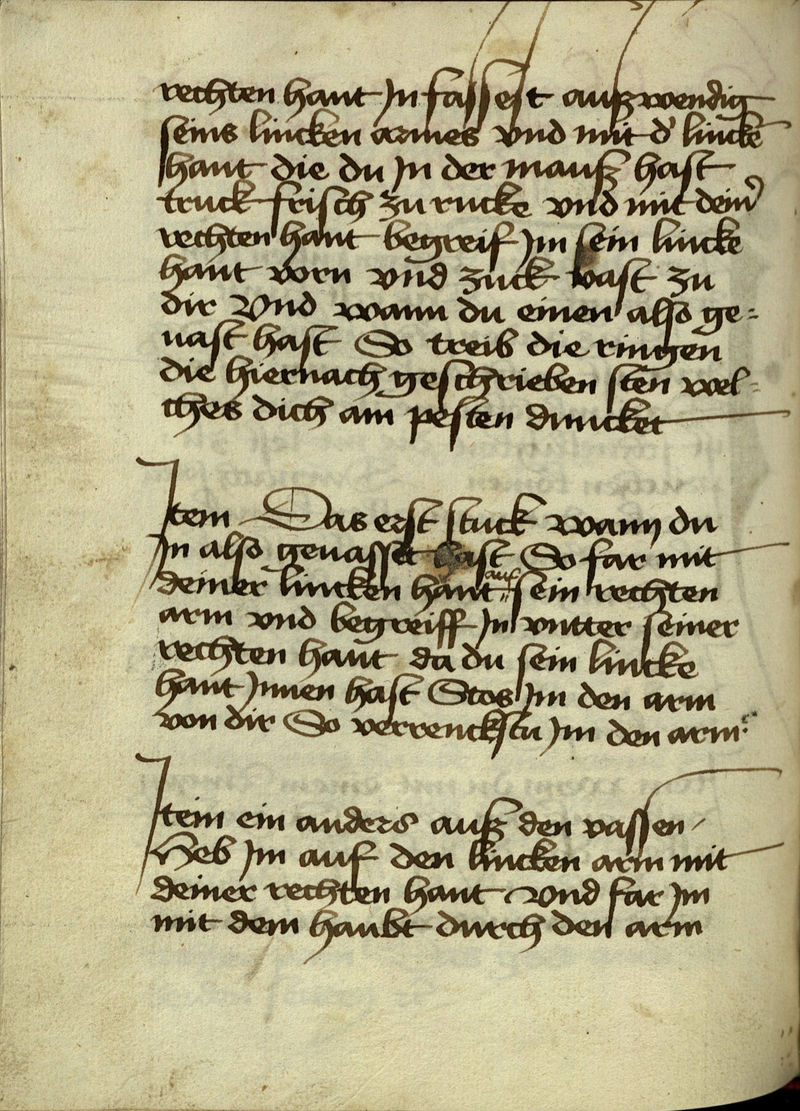 rechten hant Jn fassest außwendig
seins lincken armes vnd mit d' lincke̅
hant die du Jn der mauß hast
truck frisch zu rucke vnd mit dein'
rechten hant begreif Jm sein lincke
hant vorn vnd zuck vast zu
dir Vnd wann du einen also ge=
uast hast So treib die ringen
die hiernach geschrieben sten wel=
ches dich am pesten duncket
Jtem Das erst stuck wann du
Jn also geuasset hast So far mit
deiner lincken hant auf sein rechten
arm vnd begreiff Jn vntter seiner
rechten hant da du sein lincke
hant Jnnen hast Stos Jm den arm
von dir So verrenckstu Jm den arm
Jtem ein anders auß den vassen
Heb Jm auf den lincken arm mit
deiner rechten hant Vnd far Jm
mit dem haubt durch den arm